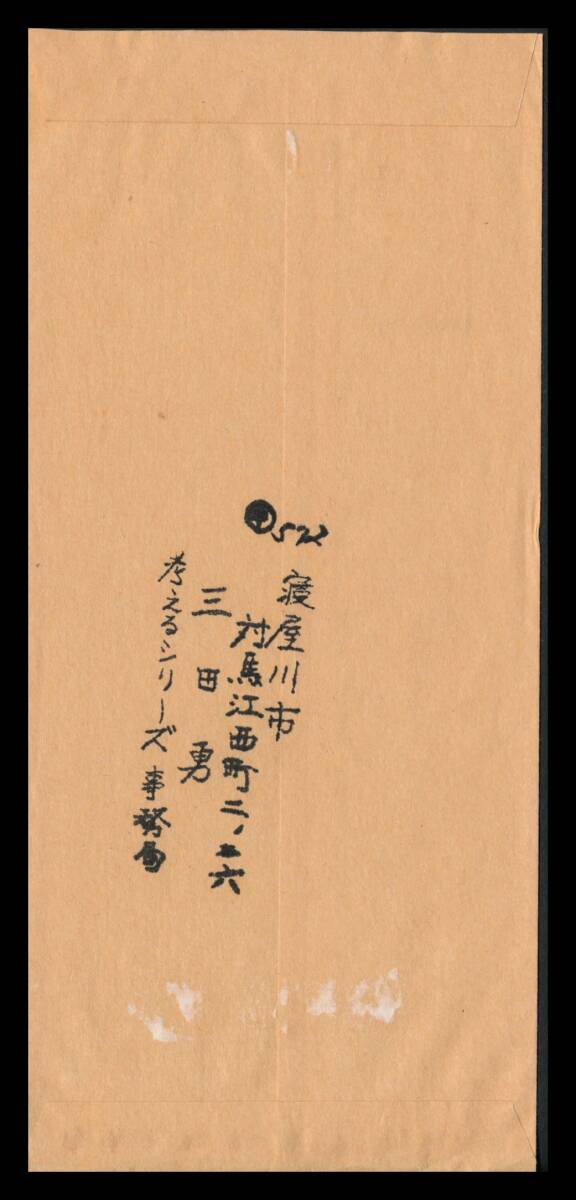 〒572
寝屋川市
対馬江西町二、二六
三田勇
考えるシリーズ事務局